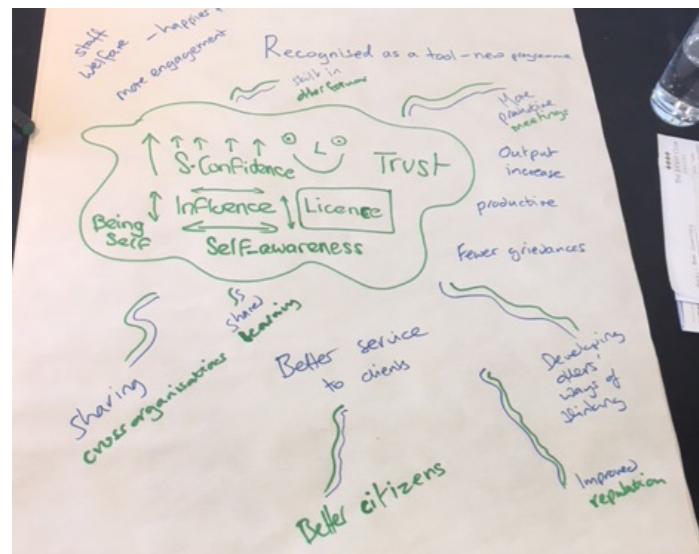 staff
welfare – happies
more engagement
Recognised as a tool – new programme
skills in
other forums
More
productive
meetings
Output
increase
productive
Fewer grievances
S-Confidence
Trust
Influence
Licence
Being
Self
Self-awareness
shared
learning
Sharing
cross organisations
Better service
to clients
Better citizens
Developing
others'
ways of
thinking
Improved
reputation